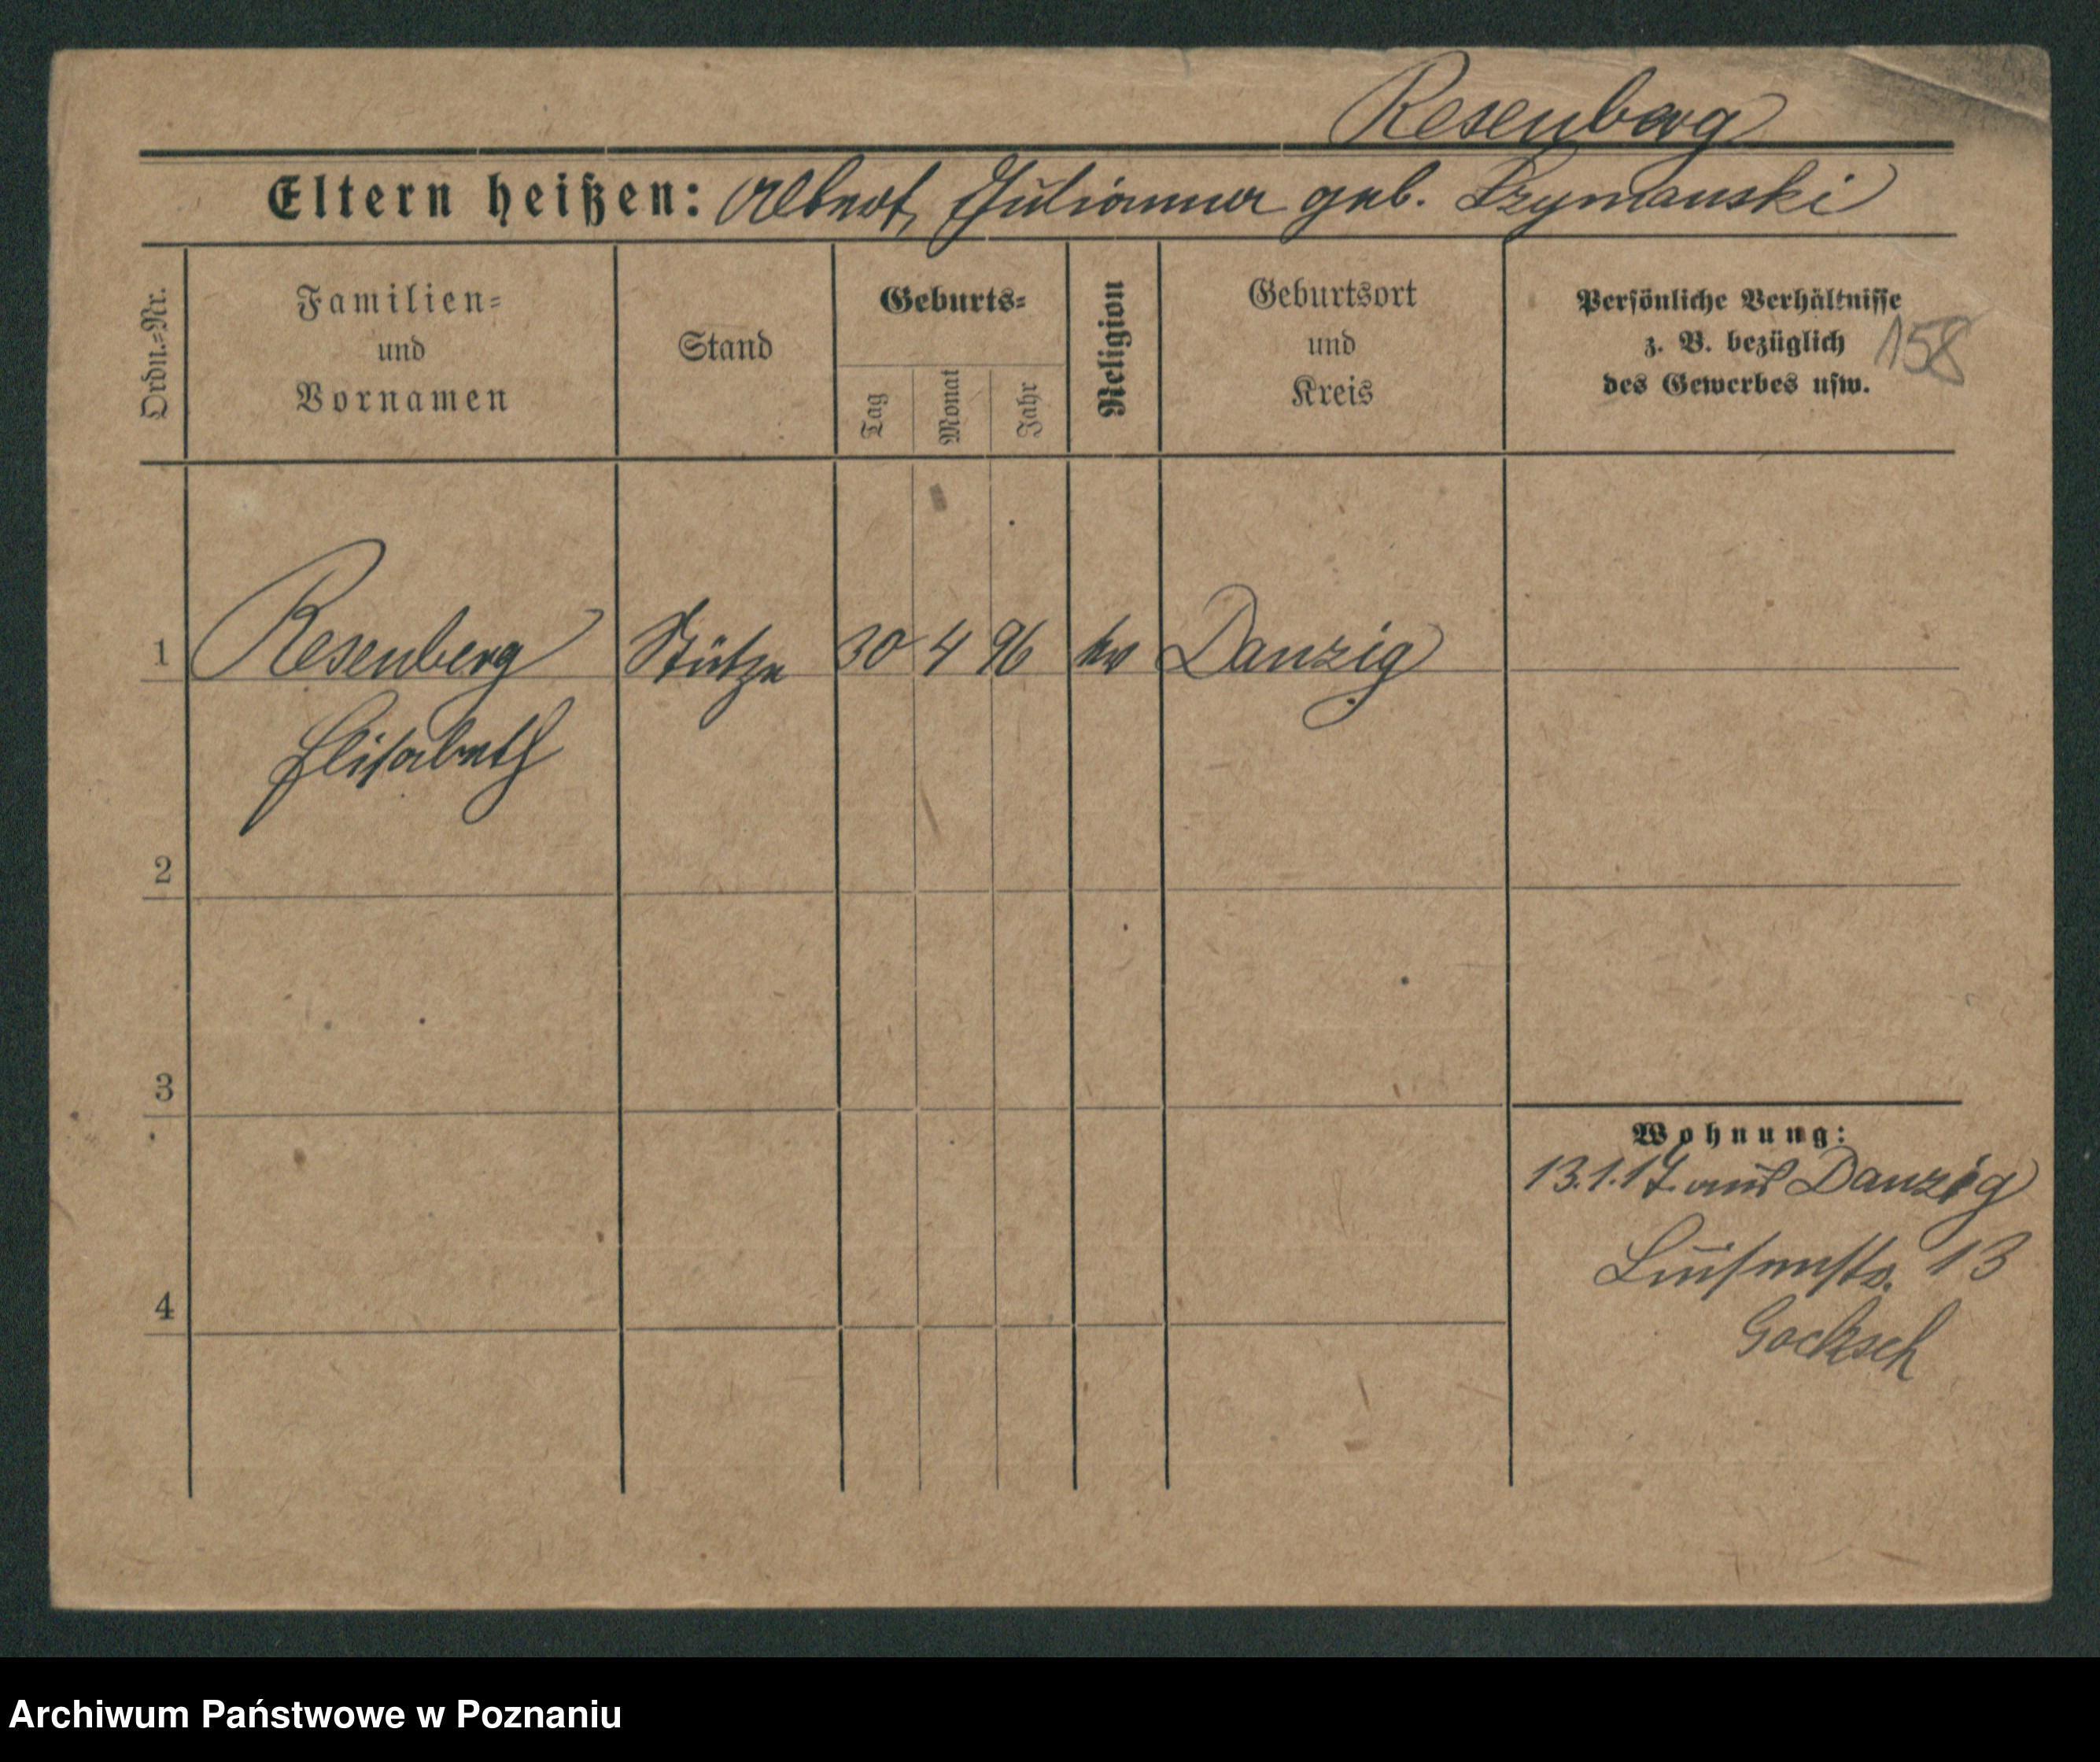 Resenberg
Eltern heißen: Albert, Julianna geb. Szymanski
Ordn.=Nr.
Familien=
und
Vornamen
Stand
Geburts=
Tag
Monat
Jahr
Religion
Geburtsort
und
Kreis
Persönliche Verhältnisse
z. B. bezüglich
des Gewerbes usw.
158
1 Resenberg Stütze 30 4 96 Danzig
Elisabeth
2
3
4
Wohnung:
13.1.17. aus Danzig
Luisenstr. 13
Gocksch
Archiwum Państwowe w Poznaniu